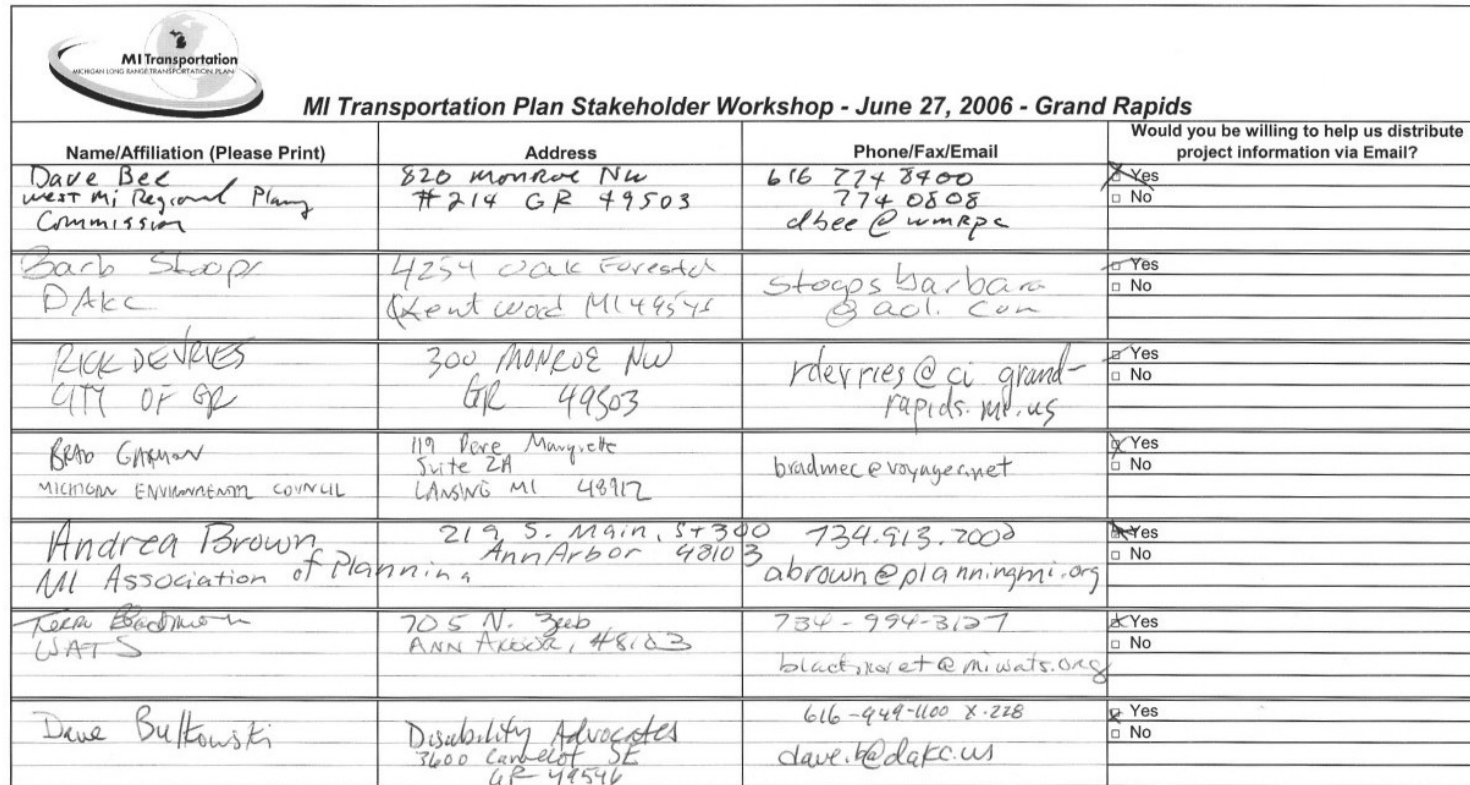 MI Transportation
MICHIGAN LONG RANGE TRANSPORTATION PLAN
MI Transportation Plan Stakeholder Workshop - June 27, 2006 - Grand Rapids
Name/Affiliation (Please Print)
Address
Phone/Fax/Email
Would you be willing to help us distribute
project information via Email?
Dave Bee
West Mi Regional Plang
Commission
820 Monroe NW
#214 GR 49503
616 774 8400
774 0808
dbee@wmRpc
Yes
No
Barb Stoops
DAKC
4254 Oak Forest
Kentwood MI
stoopsbarbara
@aol.com
Yes
No
RICK DEVRIES
CITY OF GR
300 MONROE NW
GR 49503
rdevries@ci grand-
rapids.mi.us
Yes
No
BRAD GARMON
MICHIGAN ENVIRONMENTAL COUNCIL
119 Pere Marquette
Suite 2A
LANSING MI 48912
bradmec@voyager.net
Yes
No
Andrea Brown
MI Association of Planning
219 S. Main, St 300
Ann Arbor 48103
734.913.2000
abrown@planningmi.org
Yes
No
WATS
705 N. Zeeb
ANN ARBOR, 48103
734-994-3127
@miwats.org
Yes
No
Dave Bulkowski
Disability Advocates
3600 Camelot SE
GR 49546
616-949-1100 x.228
dave.b@dakc.us
Yes
No